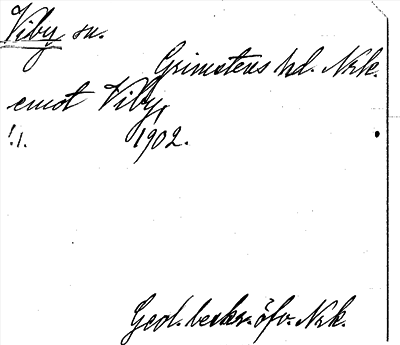 Viby sn.
Grimstens hd. Nrk.
emot Viby,
!.1. 1902.
Geol. beskr. öfv. Nrk.